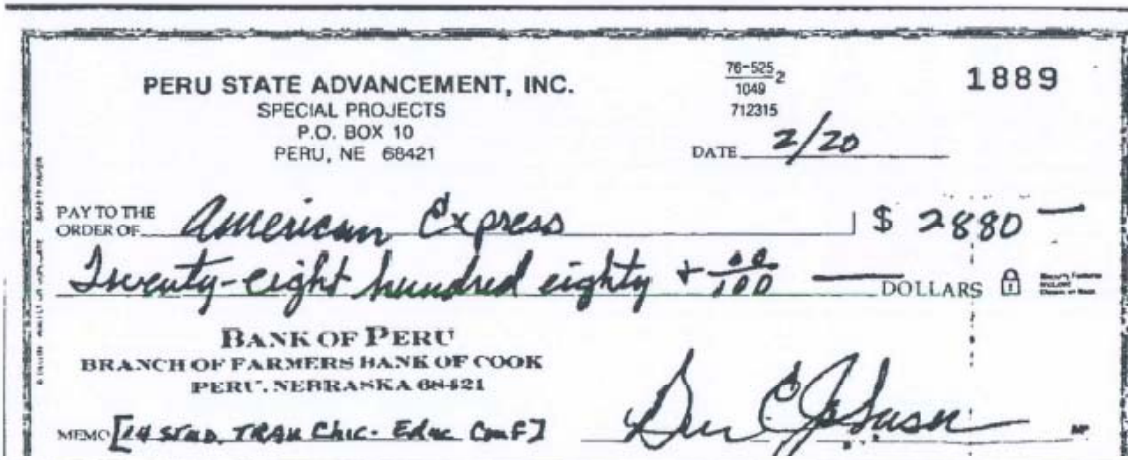 PERU STATE ADVANCEMENT, INC.
SPECIAL PROJECTS
P.O. BOX 10
PERU, NE 68421
76-525 2
1049
712315
1889
DATE 2/20
PAY TO THE ORDER OF American Express $ 2880
Twenty-eight hundred eighty + 00/100 DOLLARS
BANK OF PERU
BRANCH OF FARMERS BANK OF COOK
PERU, NEBRASKA 68421
MEMO [14 STUD. TRAV Chic. Educ Conf]